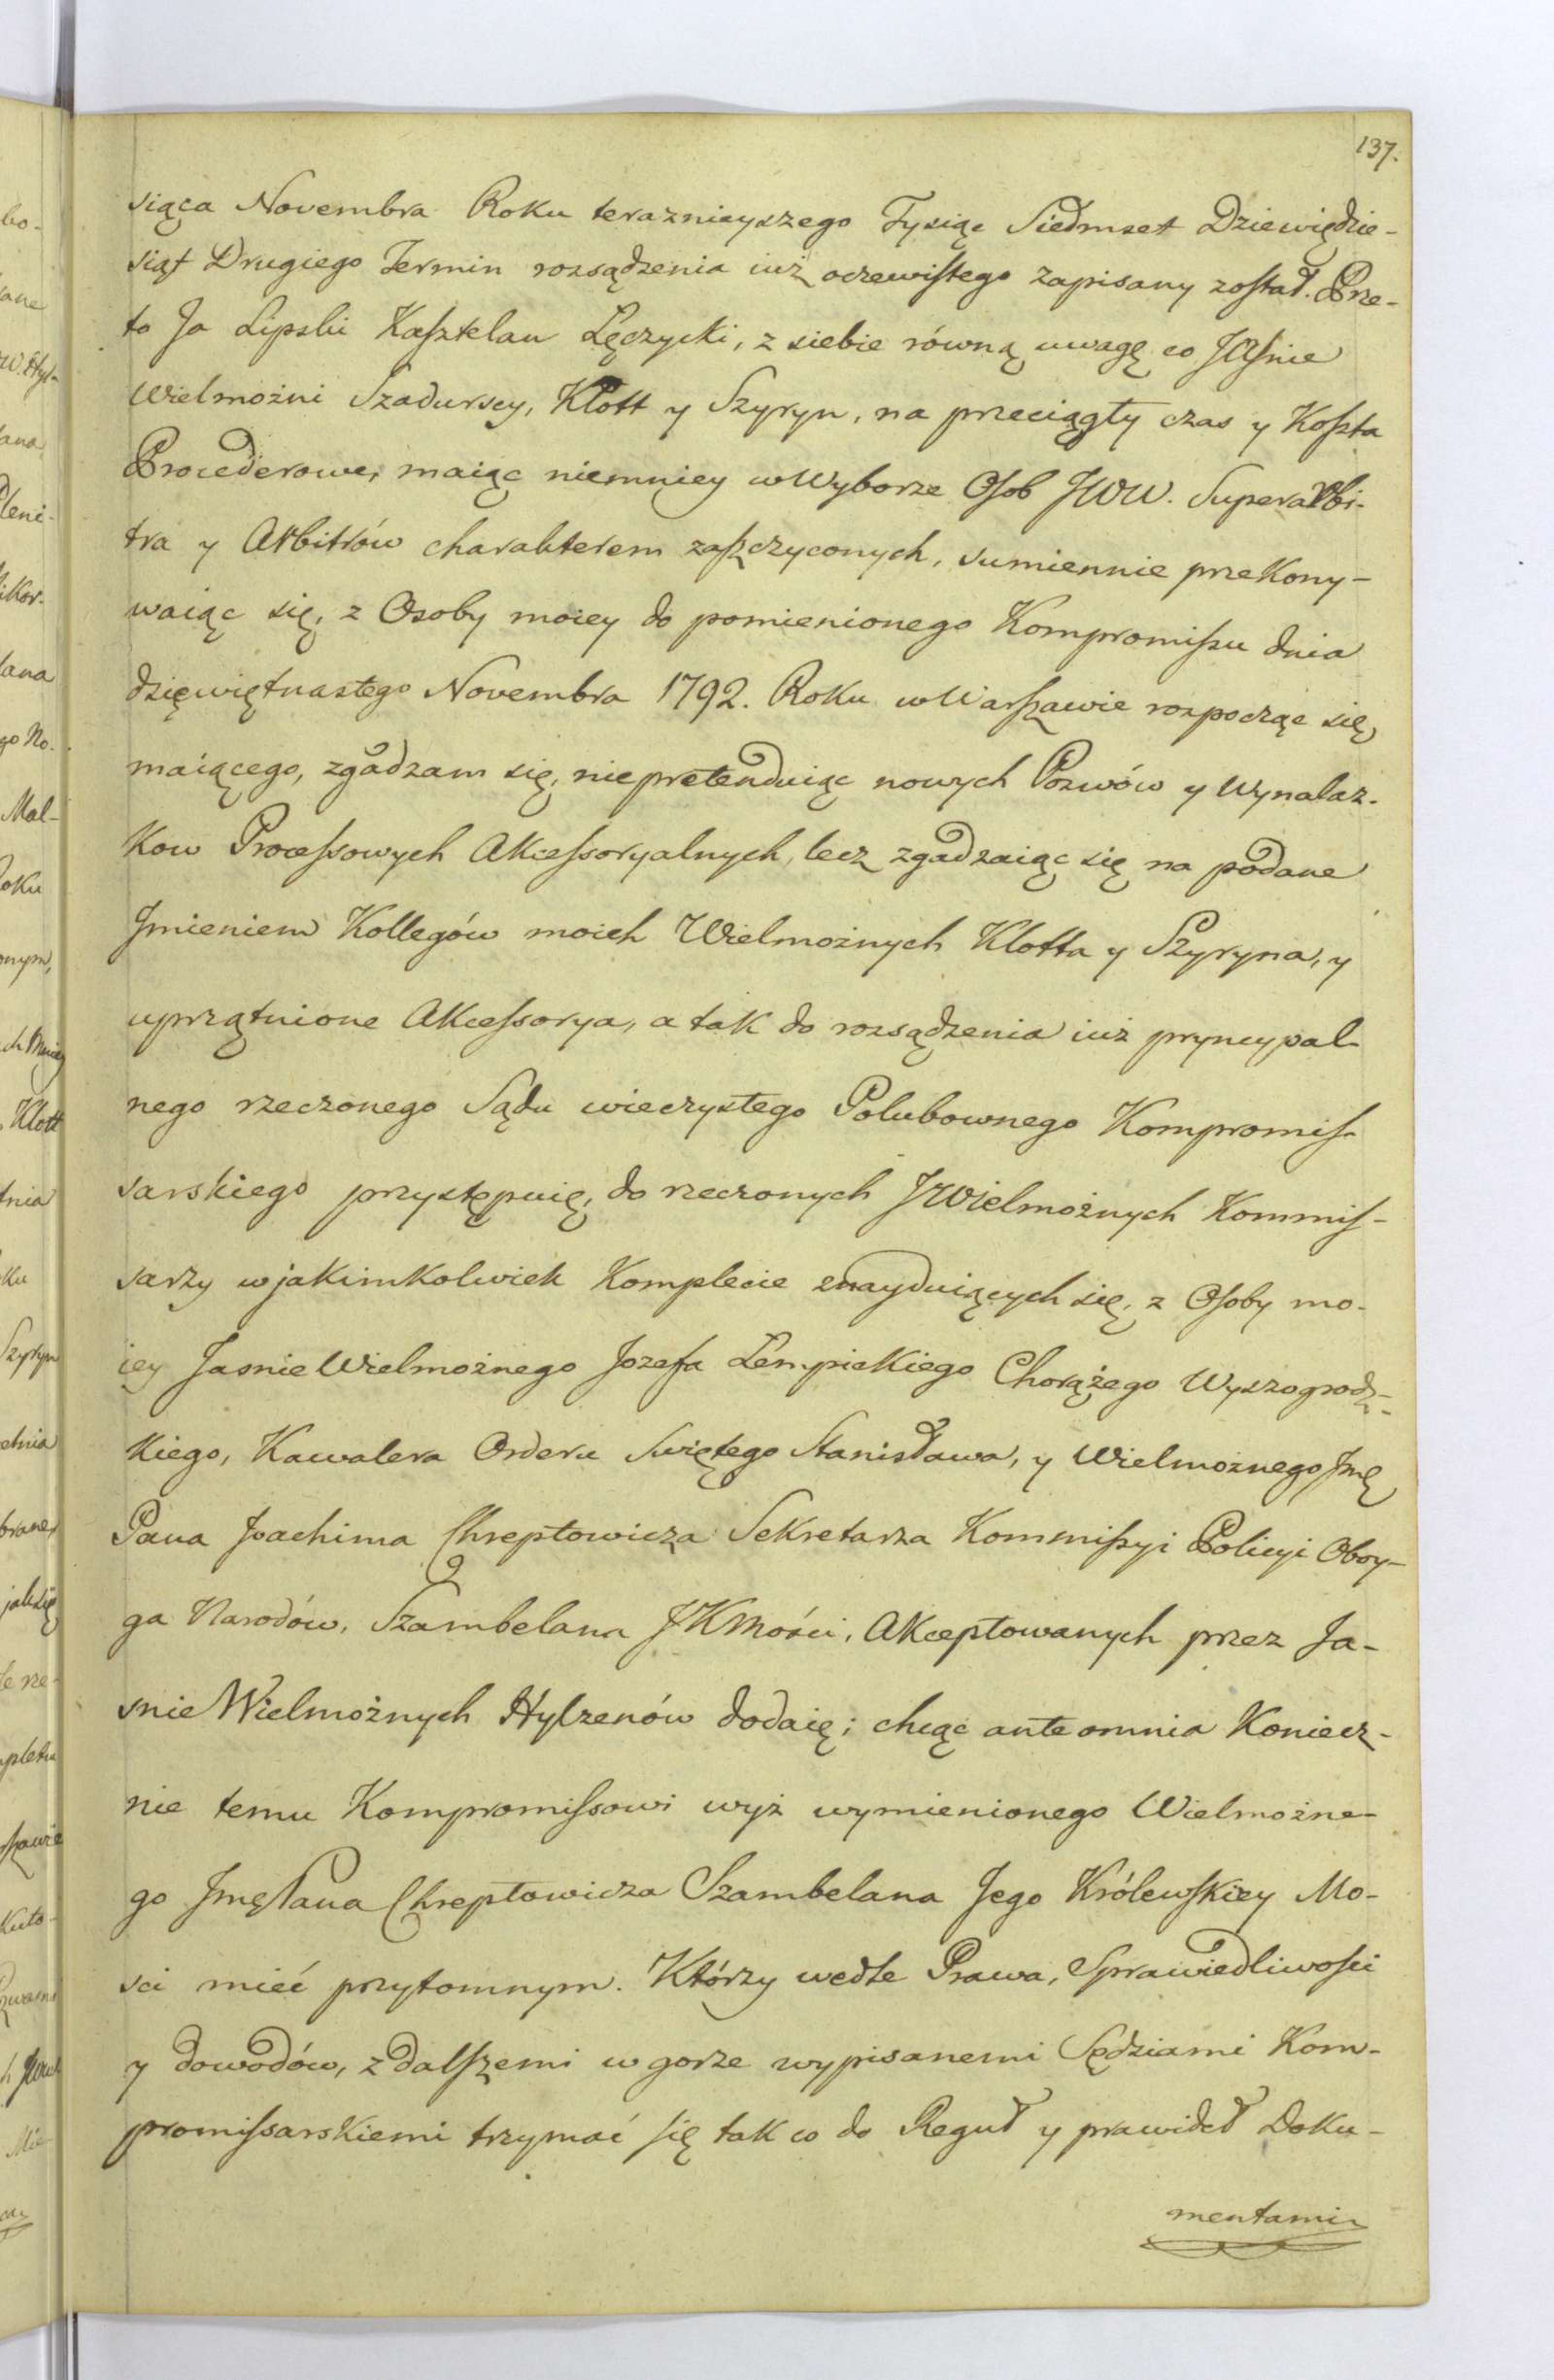 137.
siąca Novembra Roku teraznieyszego Tysiąc Siedmset Dziewiędzie-
siąt Drugiego Termin rozsądzenia iuż oczewistego zapisany został. Prze-
to Ja Lipski Kasztelan Łęczycki, z siebie równą uwagę co JAśnie
Wielmożni Szadurscy, Klott y Szyryn, na przeciągły czas y Koszta
Procederowe, maiąc niemniey w Wyborze Osob JWW. Superarbi-
tra y Arbitrów charakterem zaszczyconych, sumiennie przekony-
waiąc się, z Osoby moiey do pomienionego Kompromissu dnia
dzięwiętnastego Novembra 1792. Roku w Warszawie rozpocząc się,
maiącego, zgadzam się, niepretenduiąc nowych Pozwów y Wynalaz-
kow Processowych Akcessoryalnych, lecz zgadzaiąc się na podane
Jmieniem Kollegów moich Wielmożnych Klotta y Szyryna, y
uprzątnione Akcessorya, a tak do rozsądzenia iuż pryncypal-
nego rzeczonego Sądu wieczystego Polubownego Kompromis-
sarskiego przystępuię, do rzeczonych JWielmożnych Kommis-
sarzy w jakimkolwiek Komplecie znayduiących się, z Osoby mo-
iey Jasnie Wielmożnego Jozefa Lempickiego Chorążego Wyszogrodz-
kiego, Kawalera Orderu Swiętego Stanisława, y Wielmożnego Jmę
Pana Joachima Chreptowicza Sekretarza Kommissyi Policyi Oboy-
ga Narodów, Szambelana JKMości, Akceptowanych przez Ja-
snie Wielmożnych Hylzenów dodaię; chcąc ante omnia Koniecz-
nie temu Kompromissowi wyż wymienionego Wielmożne-
go Jmę Pana Chreptowicza Szambelana Jego Królewskiey Mo-
sci mieć przytomnym. Którzy wedle Prawa, Sprawiedliwosci
y dowodów, z Dalszemi w gorze wypisanemi Sędziami Kom-
promissarskiemi trzymać się tak co do Reguł y prawideł Doku-
mentami